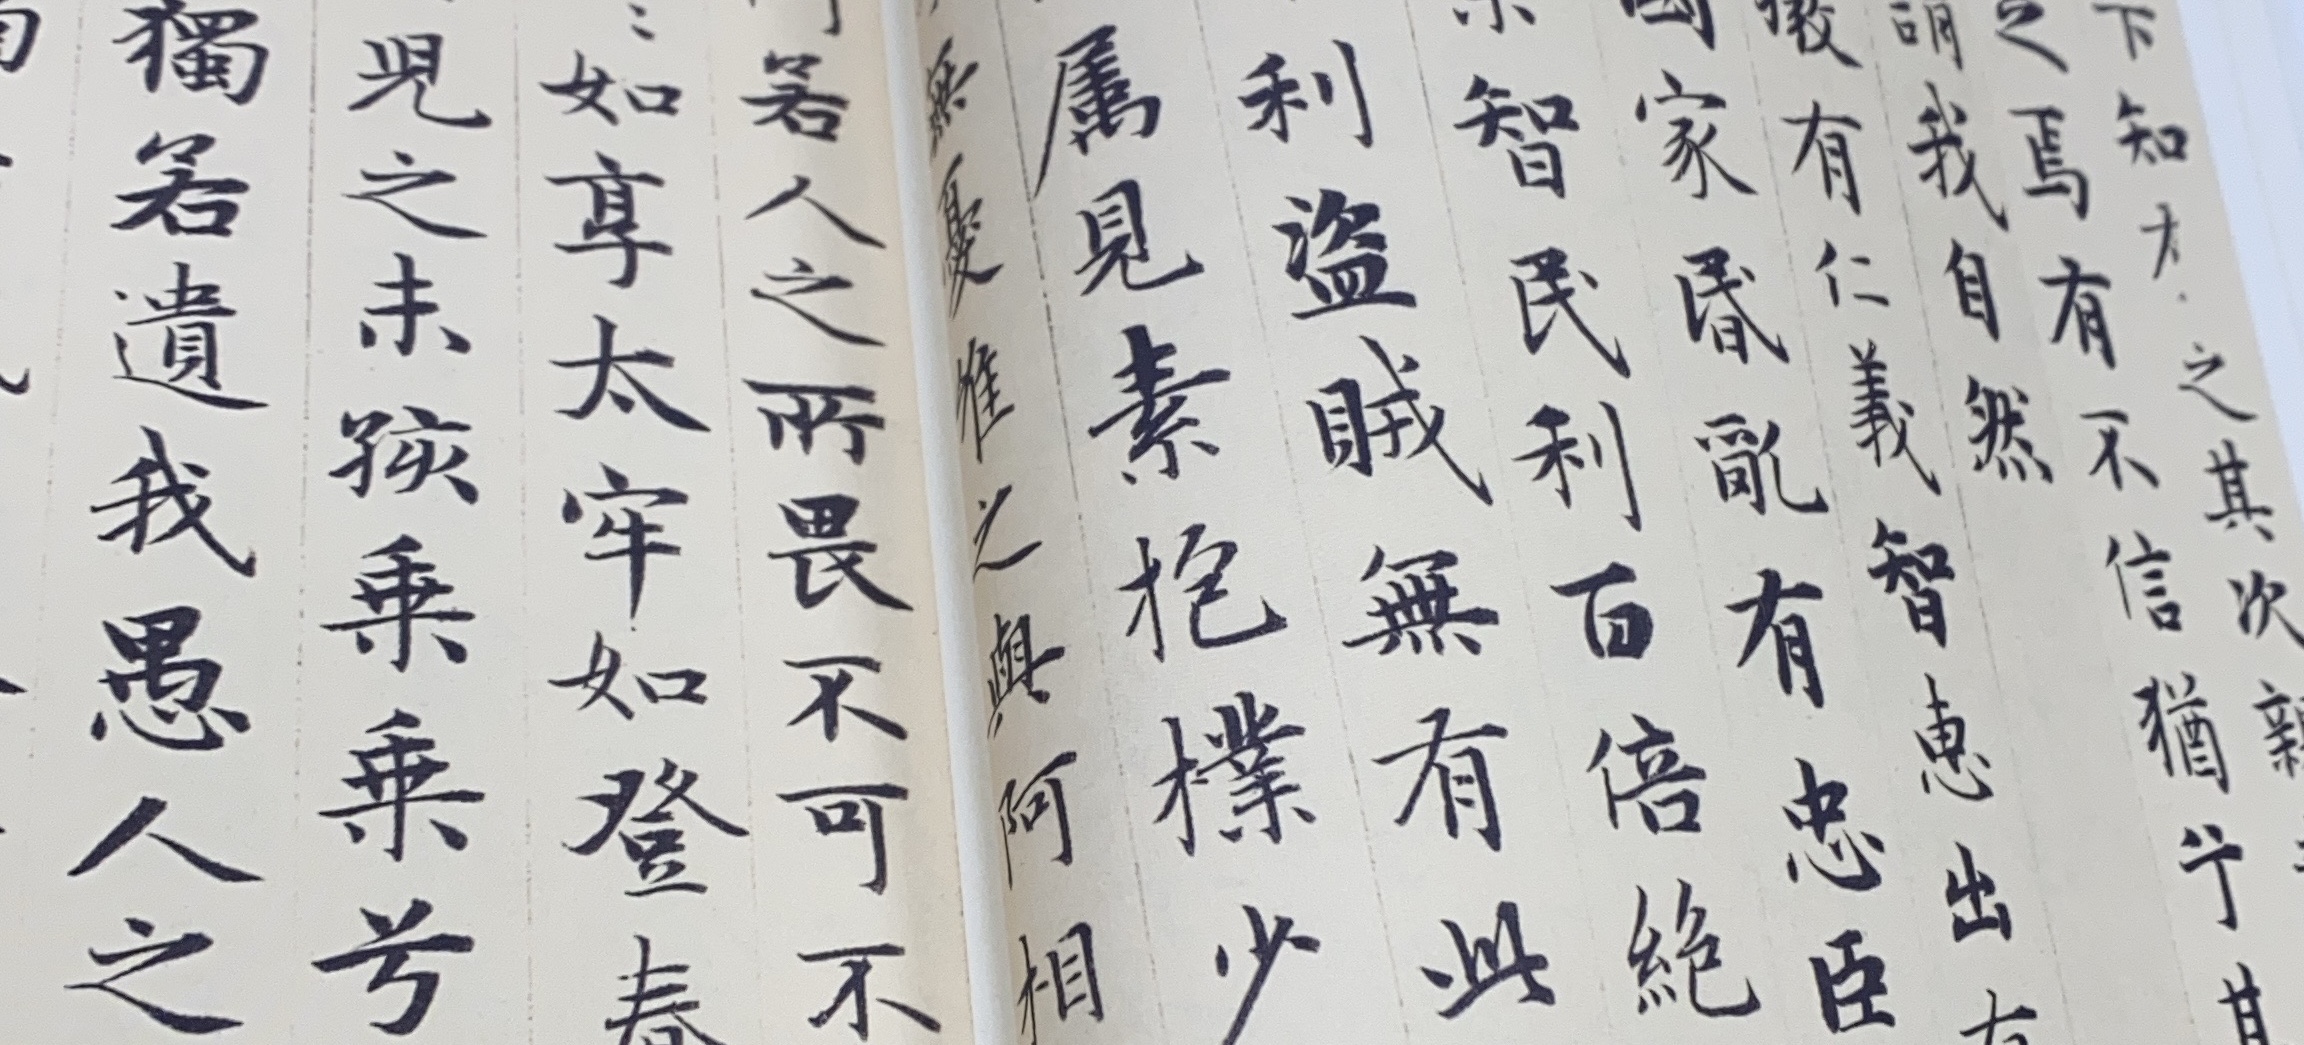 下知之其次親
之焉有不信猶兮其
謂我自然
廢有仁義智惠出有
國家昬亂有忠臣
智民利百倍絕
利盜賊無有此
属見素抱樸少
無憂唯之與阿相
若人之所畏不可不
如享太牢如登春
兒之未孩乗乗兮
獨若遺我愚人之